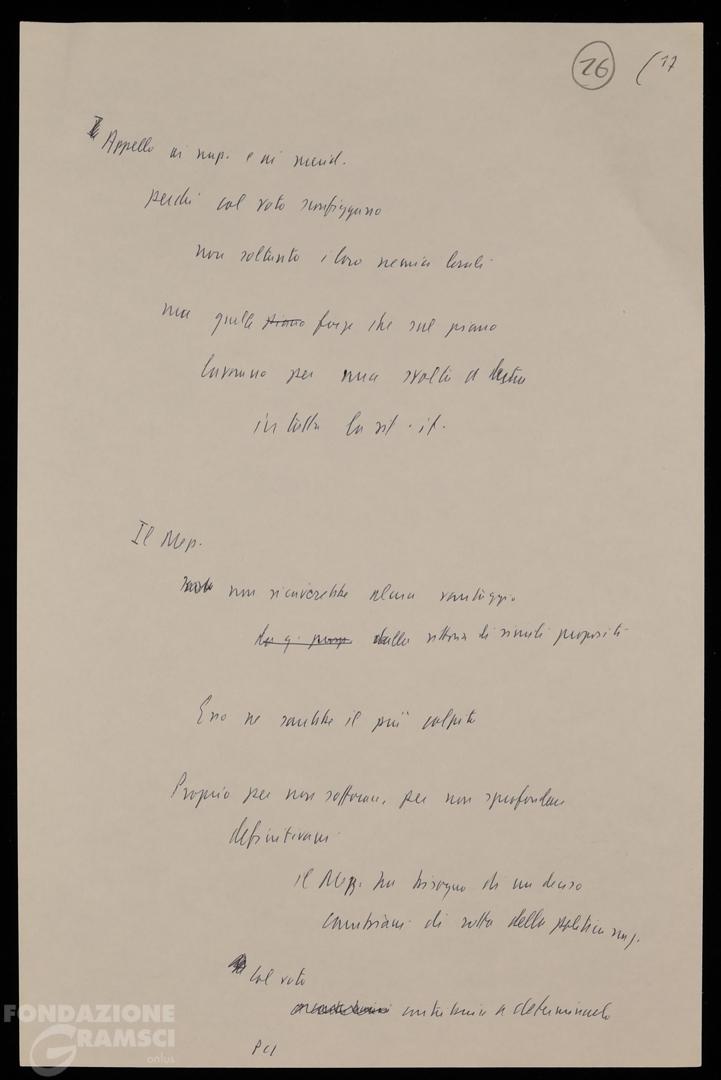 26 (17
Appello ai nap. e ai merid.
perché col voto sconfiggano
non soltanto i loro nemici locali
ma quelle piano forze che sul piano
lavorano per una svolta a destra
in tutta la sit. it.
Il Mezz.
non ricaverebbe alcun vantaggio
dalla vittoria di simili propositi
Esso ne sarebbe il più colpito
Proprio per non soffocare, per non sprofondare
definitivam.
il Mezz. ha bisogno di un deciso
cambiam. di rotta della politica naz.
Col voto
contribuire a determinarlo
PCI
FONDAZIONE
GRAMSCI
onlus